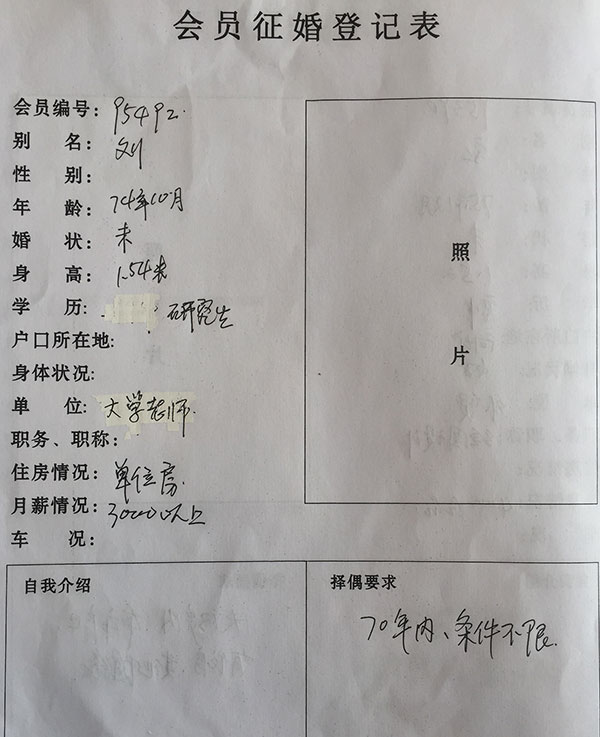 会员征婚登记表
会员编号: 95492
别 名: 刘
性 别:
年 龄: 74年10月
婚 状: 未
身 高: 1.54米
学 历: 研究生
户口所在地:
身体状况:
单 位: 大学老师
职务、职称:
住房情况: 单位房
月薪情况: 30000以上
车 况:
照
片
自我介绍
择偶要求
70年内、条件不限